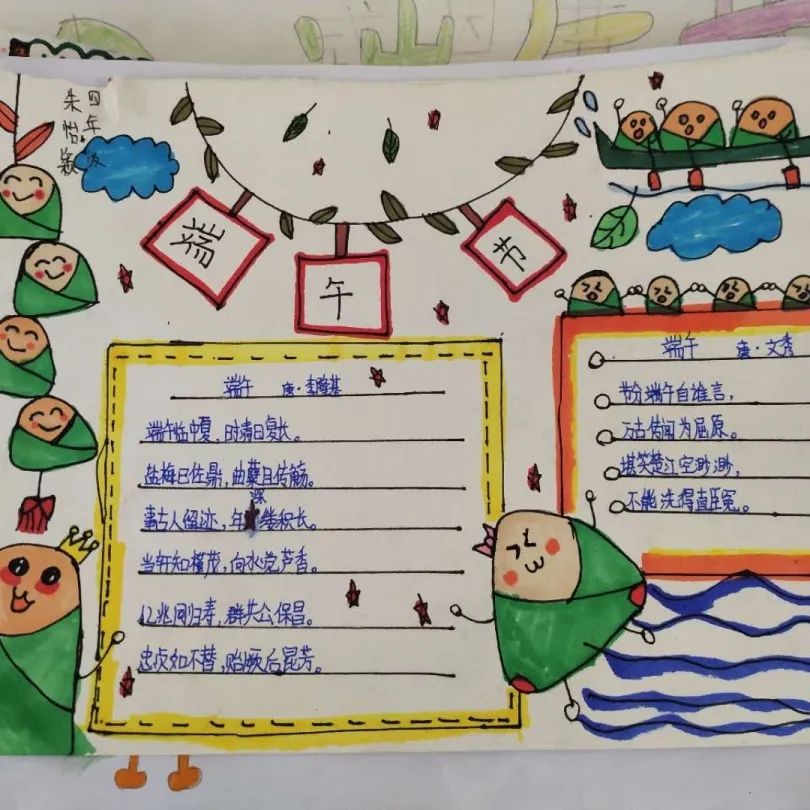 四年级
朱怡颖
端午节
端午 唐·李隆基
端午临中夏，时清日复长。
盐梅已佐鼎，曲蘖且传觞。
事古人留迹，年深缕积长。
当轩知槿茂，向水觉芦香。
亿兆同归寿，群共公保昌。
忠贞如不替，贻厥后昆芳。
端午 唐·文秀
节分端午自谁言，
万古传闻为屈原。
堪笑楚江空渺渺，
不能洗得直臣冤。